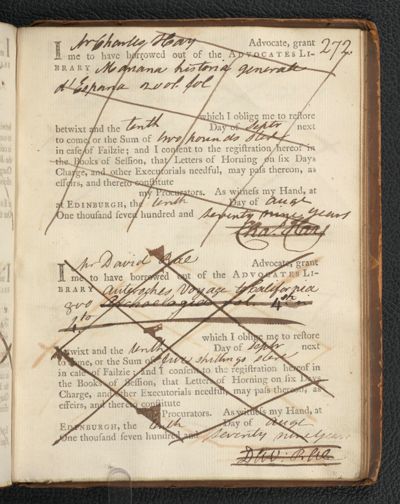 272
I Mr Charles Hay Advocate, grant
me to have borrowed out of the ADVOCATES LI-
BRARY Mariana historia generale
d'Espana 2 vol. fol.
which I oblige me to reſtore
betwixt and the tenth Day of Septr next
to come, or the Sum of two pounds Sterl
in caſe of Failzie; and I conſent to the regiſtration hereof in
the Books of Seſſion, that Letters of Horning on ſix Days
Charge, and other Executorials needful, may paſs thereon, as
effeirs, and thereto conſtitute
my Procurators. As witneſs my Hand, at
at EDINBURGH, the tenth Day of Augt
One thouſand ſeven hundred and seventy nine years
Cha: Hay
I Mr David Rae Advocate, grant
me to have borrowed out of the ADVOCATES LI-
BRARY Voyage to California
8vo Archaeologia vol. 4th
4to
which I oblige me to reſtore
betwixt and the tenth Day of Septr next
to come, or the Sum of shillings Sterl
in caſe of Failzie; and I conſent to the regiſtration hereof in
the Books of Seſſion, that Letters of Horning on ſix Days
Charge, and other Executorials needful, may paſs thereon, as
effeirs, and thereto conſtitute
Procurators. As witneſs my Hand, at
EDINBURGH, the tenth Day of Augt
One thouſand ſeven hundred and seventy nine years
Dav: Rae